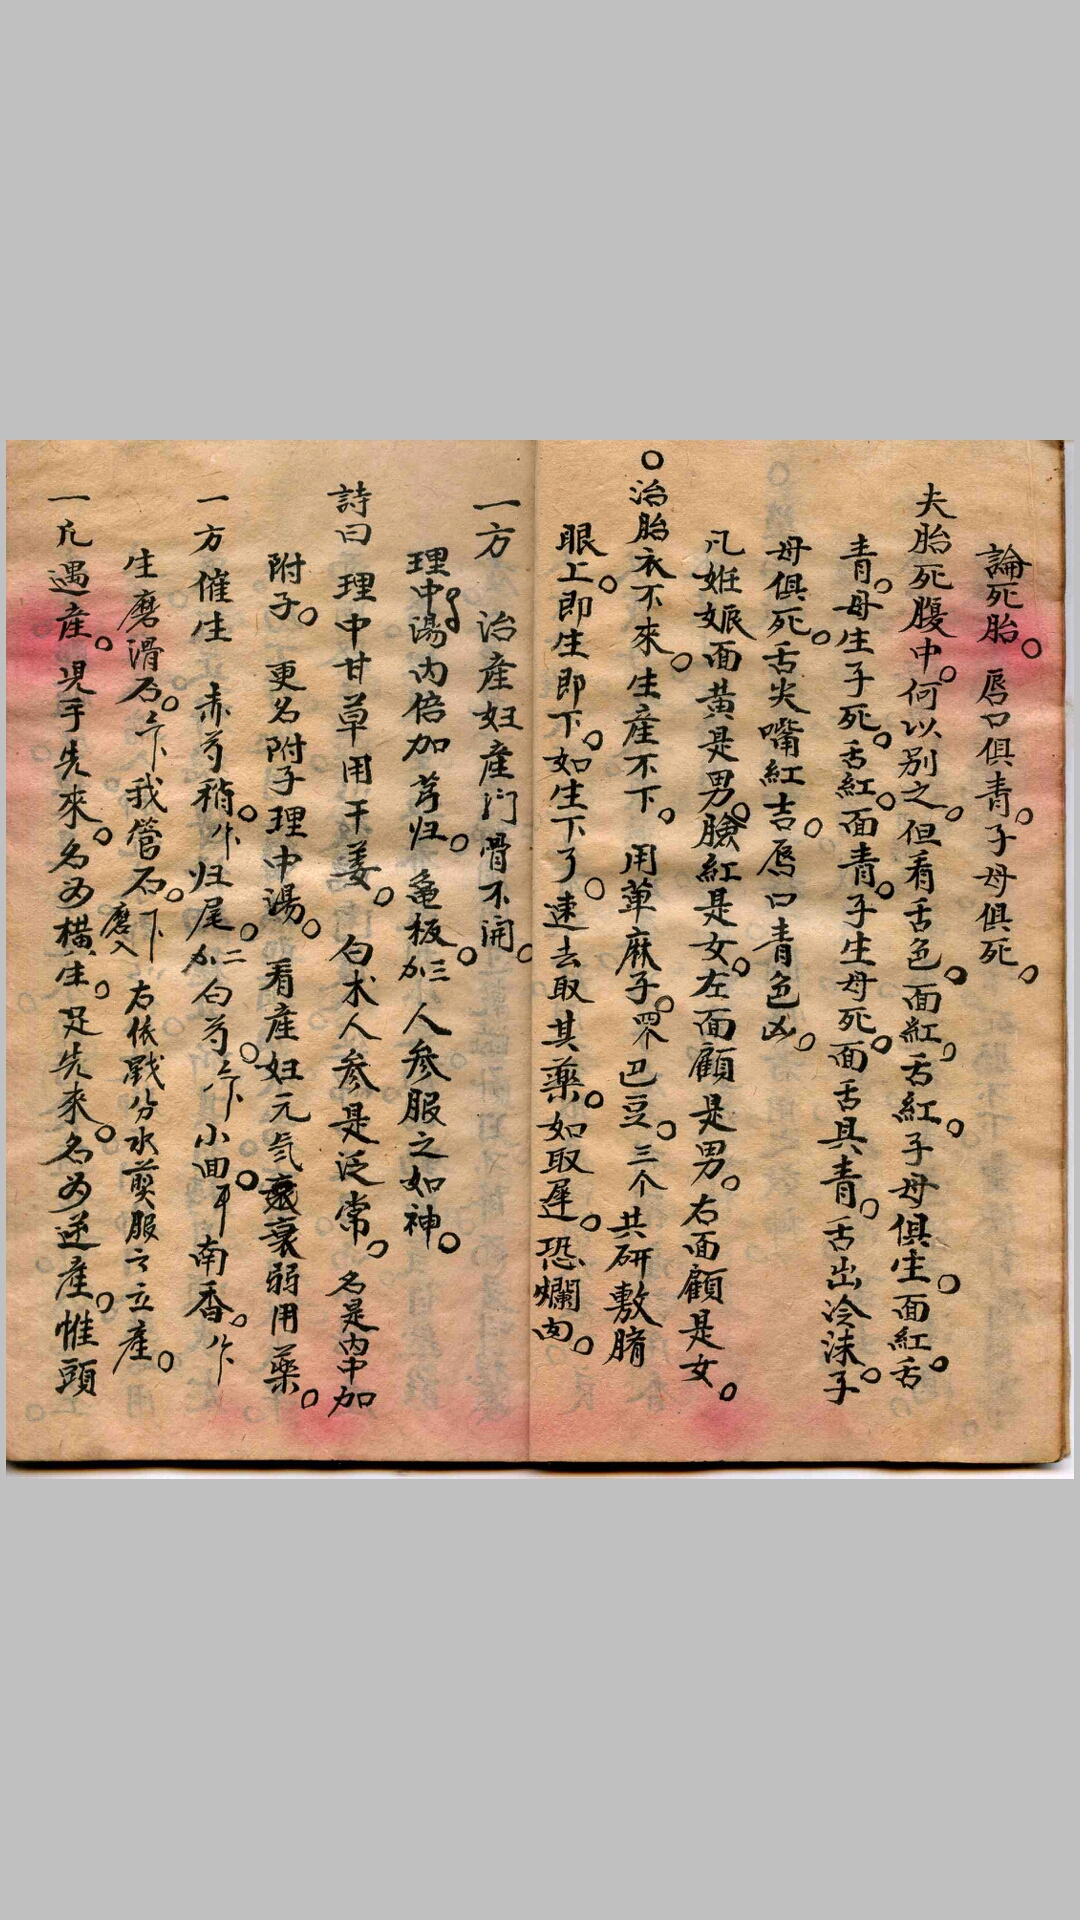 論死胎。唇口俱青。子母俱死。
夫胎死腹中。何以别之。但看舌色。面紅。舌紅。子母俱生。面紅。舌
青。母生子死。舌紅。面青。子生母死。面舌具青。舌出冷沫。子
母俱死。舌尖嘴紅吉。唇口青色凶。
凡姙娠面黃是男。臉紅是女。左面顧是男。右面顧是女。
○治胎衣不來。生產不下。用萆麻子。四个巴豆。三个共研敷脐
眼上。即生即下。如生下了。速去取其藥。如取遲。恐爛肉。
一方 治產妇產门骨不開。
理中湯内倍加芎归。龜板。加三人参服之如神。
詩曰 理中甘草用干姜。白术人参是泛常。名是内中加
附子。更名附子理中湯。看產妇元氣衰弱用藥。
一方催生 赤芍稍。归尾。加二白芍。小面。南香。
生磨滑石。我管石。磨入 右依戥分水煎服立產。
一凡遇產。児手先來。名为横生。足先來。名为逆產。惟頭